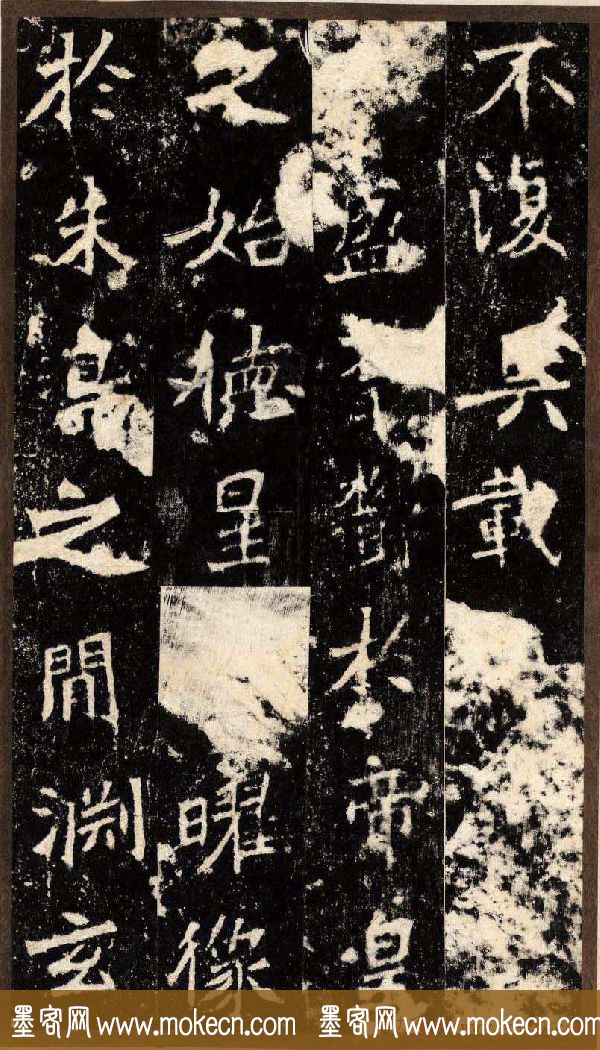 不復兵載
盛 於帝皇
之始德星 曜像
於朱鳥之間淵玄
墨客网 www.mokecn.com 墨客网 www.mokecn.com